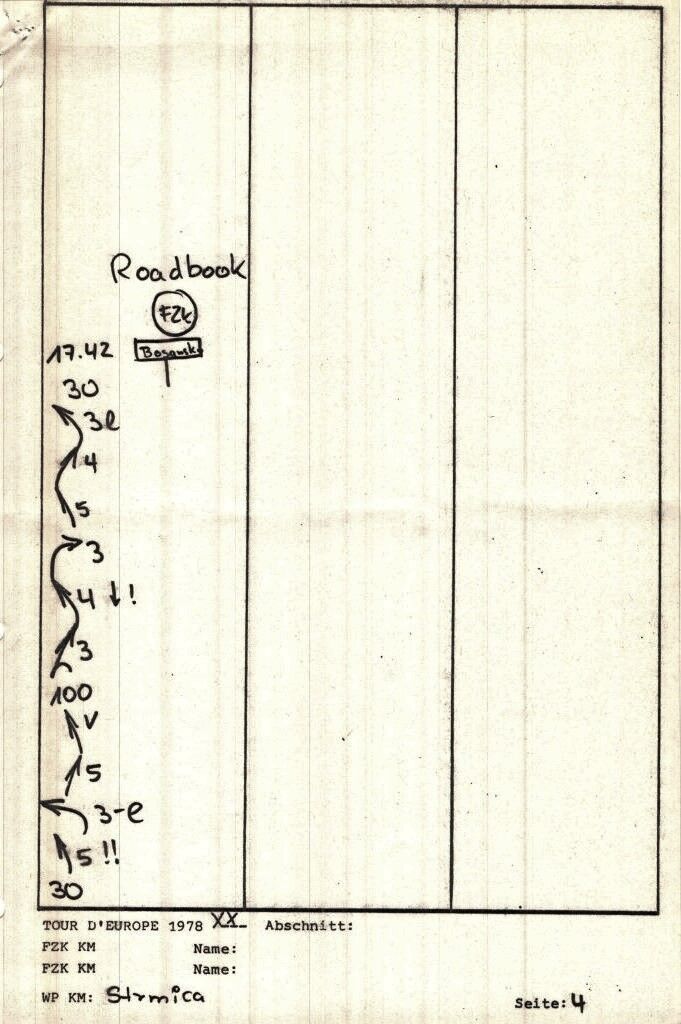 Roadbook
FZK
17.42
30
3e
4
5
3
4 ↓!
3
100
V
5
3-e
5 !!
30
TOUR D'EUROPE 1978 XX Abschnitt:
FZK KM Name:
FZK KM Name:
WP KM: Strmica
Seite: 4